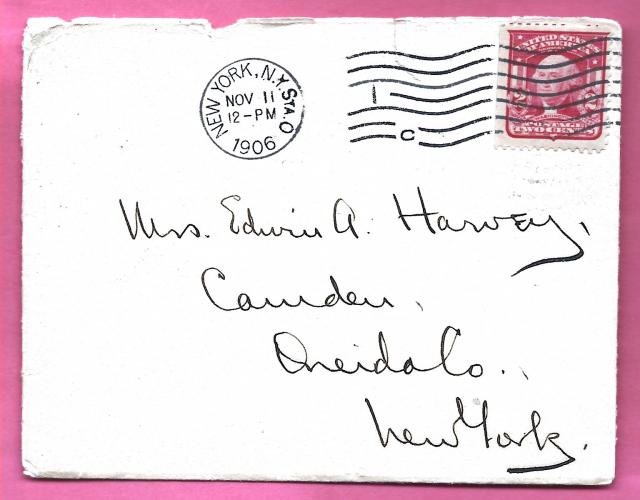 NEW YORK, N.Y. STA. O
NOV 11
12-PM
1906
1
C
UNITED STATES
OF AMERICA
2 2
POSTAGE
TWO CENTS
Mrs. Edwin A. Harvey,
Camden,
Oneida Co.,
New York.